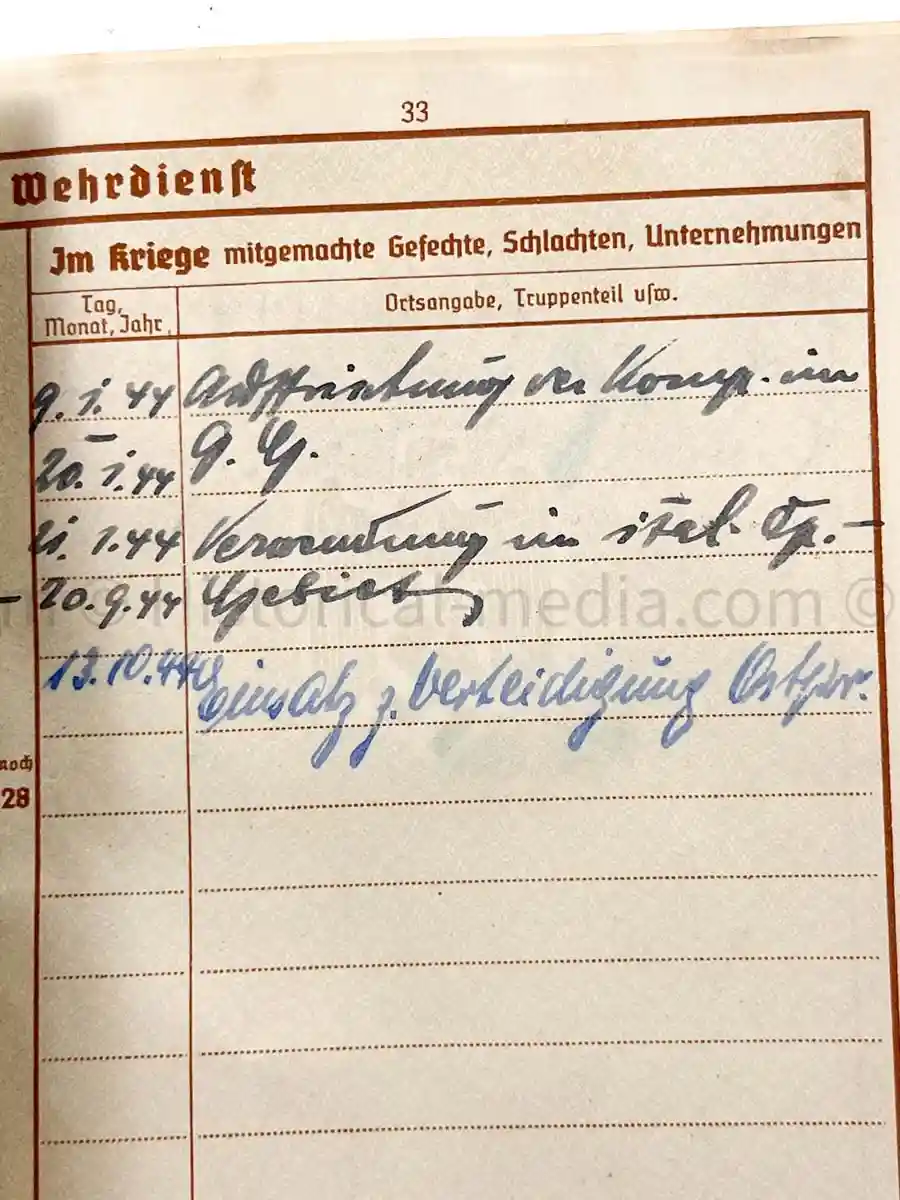 33
Wehrdienst
Im Kriege mitgemachte Gefechte, Schlachten, Unternehmungen
Tag,
Monat, Jahr
Ortsangabe, Truppenteil usw.
9. 1. 44 Auffrischung der Komp. im
–
20. 1. 44 G. G.
21. 1. 44 Verwendung im ital. Op.–
– 20. 9. 44 Gebiet
13. 10. 44 Einsatz z. Verteidigung Ostpr.
noch
28
© historical-media.com ©